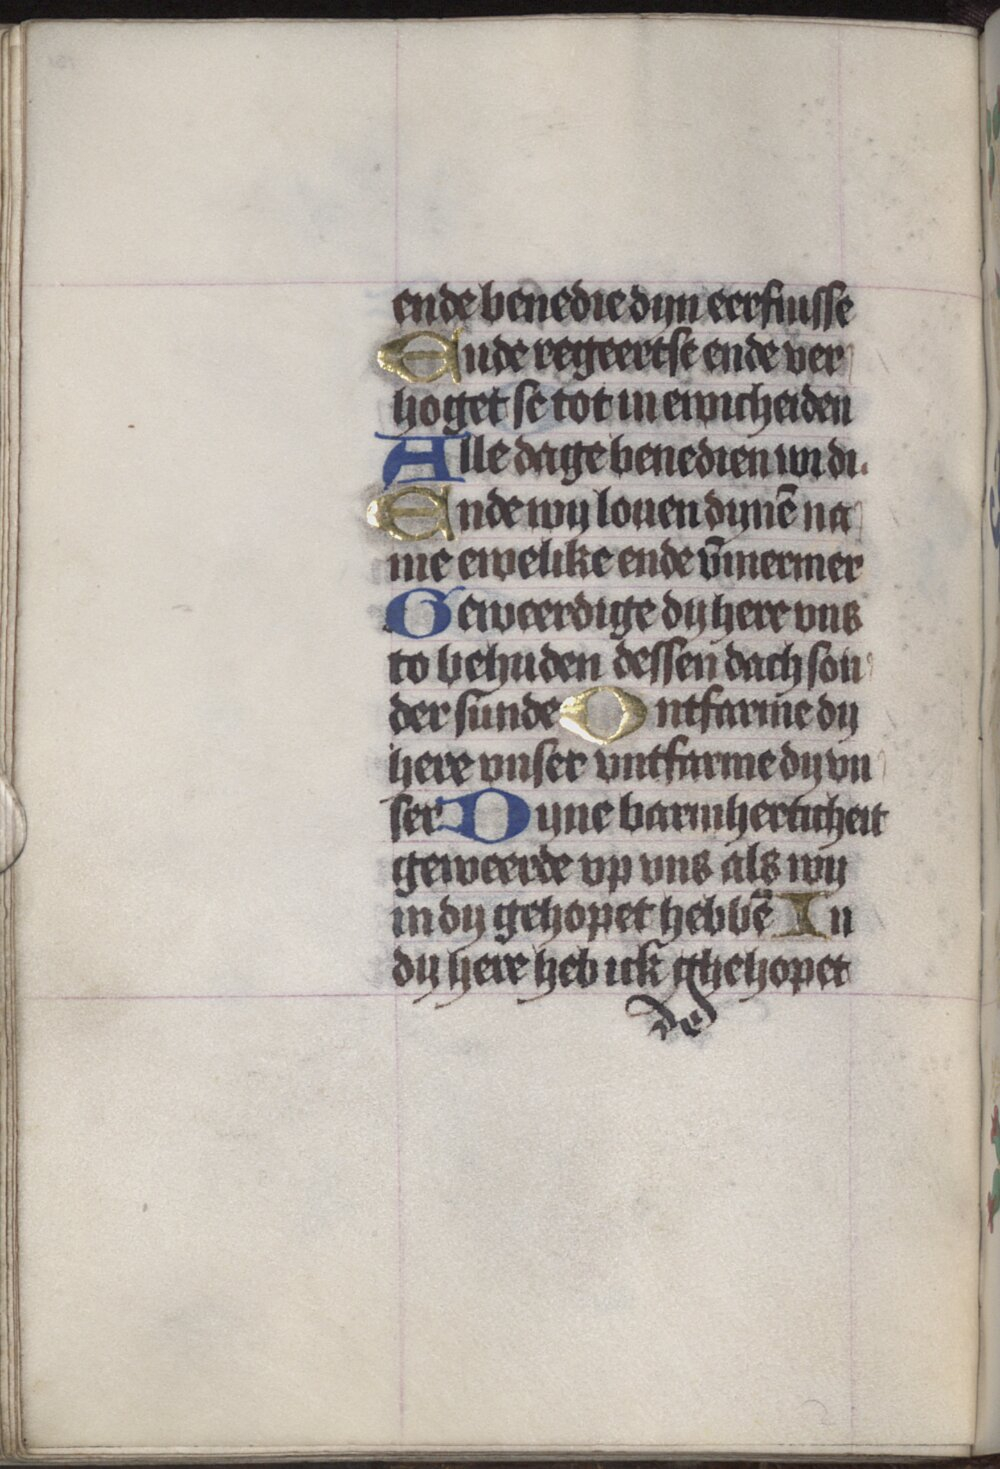 ende benedie dyn eerfnisse
Ende regeertse ende ver
hoget se tot in ewicheiden
Alle dage benedien wi di.
Ende wy louen dynē na
me ewelike ende v̄mermer
Geweerdige dy here vns
to behuden dessen dach son
der sunde Ontfarme dy
here vnser vntfarme dy vn
ser Dyne barmherticheit
geweerde vp vns als wy
in dy gehopet hebbē In
dy here heb ick ghehopet
de